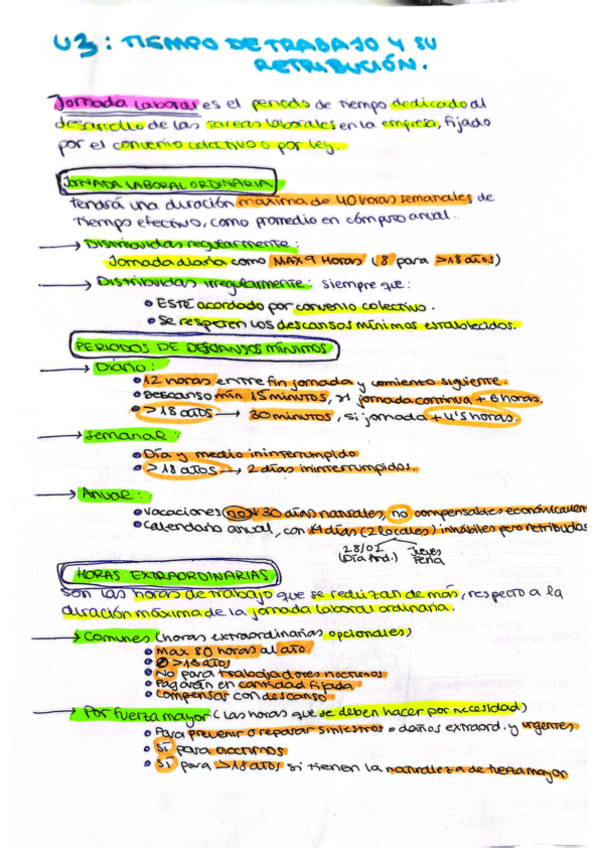 U3: TIEMPO DE TRABAJO Y SU
RETRIBUCIÓN.
Jornada laboral es el periodo de tiempo dedicado al
desarrollo de las tareas laborales en la empresa, fijado
por el convenio colectivo o por ley.
JORNADA LABORAL ORDINARIA
tendrá una duración máxima de 40 horas semanales de
tiempo efectivo, como promedio en cómputo anual.
→ Distribuidas regularmente:
Jornada diaria como MAX 9 Horas (8 para >18 años)
→ Distribuidas irregularmente: siempre que:
• ESTÉ acordado por convenio colectivo.
• Se respeten los descansos mínimos establecidos.
PERIODOS DE DESCANSOS MÍNIMOS
→ Diario:
• 12 horas entre fin jornada y comienzo siguiente.
• Descanso mín 15 minutos, si jornada continua + 6 horas.
• >18 años → 30 minutos, si jornada + 4'5 horas.
→ Semanal:
• Día y medio ininterrumpido
• >18 años → 2 días ininterrumpidos.
→ Anual:
• Vacaciones no ↓ 30 días naturales, no compensables económicamen
• Calendario anual, con 14 días (2 locales) inhábiles pero retribuidos
28/02 Jueves
(Día And.) Feria
HORAS EXTRAORDINARIAS
son las horas de trabajo que se realizan de más, respecto a la
duración máxima de la jornada laboral ordinaria.
→ Comunes (horas extraordinarias opcionales)
• Max 80 horas al año
• >18 años
• No para trabajadores nocturnos
• Pagarán en cantidad fijada
• Compensar con descanso
→ Por fuerza mayor (Las horas que se deben hacer por necesidad)
• Para prevenir o reparar siniestros o daños extraord. y urgentes
• SÍ para
• SÍ para >18 años si tienen la naturaleza de fuerza mayor